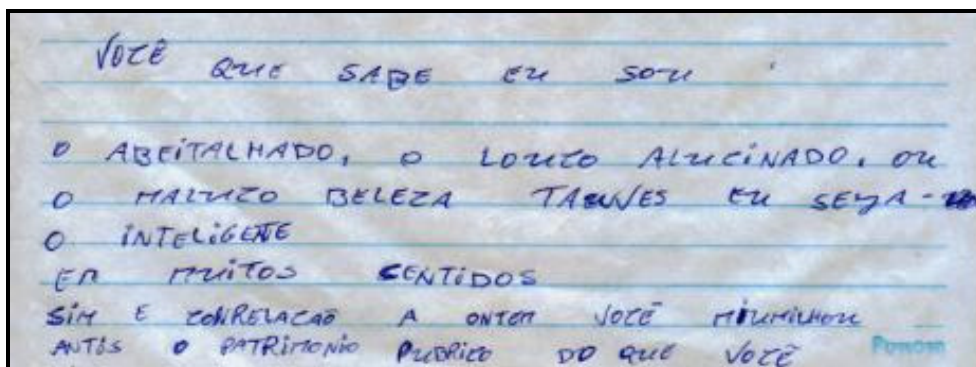 VOCÊ QUE SABE EU SOU
O ABEITALHADO, O LOUCO ALUCINADO, OU
O MALUCO BELEZA TAUVES EU SEYA-
O INTELIGENTE
EM MUITOS SENTIDOS
SIM E CONRELACAO A ONTEM VOCÊ MIUMILHOU
ANTIS O PATRIMONIO PUBRICO DO QUE VOCÊ